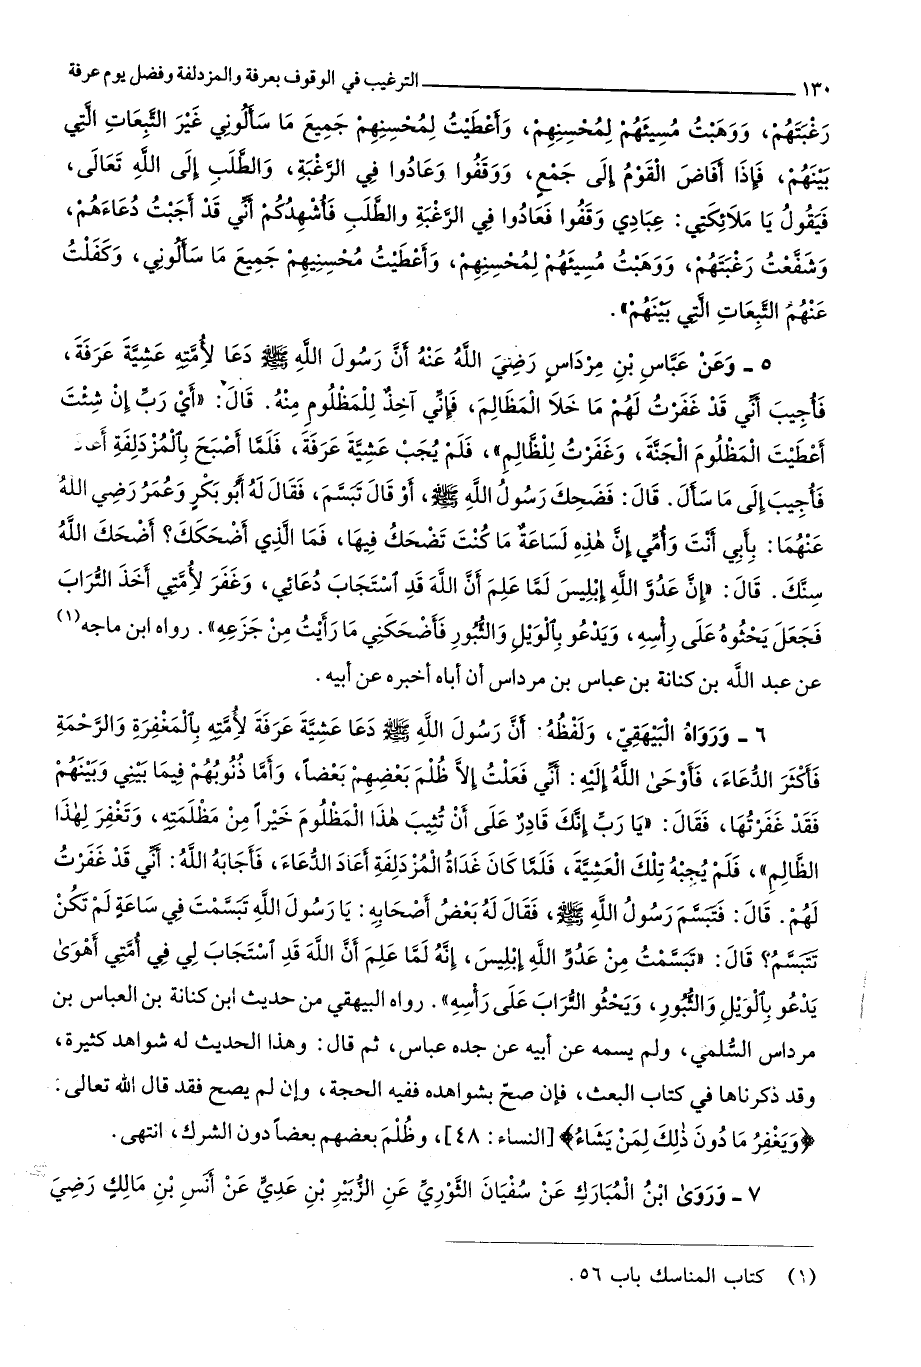 ١٣٠ الترغيب في الوقوف بعرفة والمزدلفة وفضل يوم عرفة
رَغْبَتَهُمْ، وَوَهَبْتُ مُسِيئَهُمْ لِمُحْسِنِهِمْ، وَأَعْطَيْتُ لِمُحْسِنِهِمْ جَمِيعَ مَا سَأَلُونِي غَيْرَ التَّبِعَاتِ الَّتِي
بَيْنَهُمْ، فَإِذَا أَفَاضَ الْقَوْمُ إِلَى جَمْعٍ، وَوَقَفُوا وَعَادُوا فِي الرَّغْبَةِ، وَالطَّلَبِ إِلَى اللَّهِ تَعَالَى،
فَيَقُولُ يَا مَلَائِكَتِي: عِبَادِي وَقَفُوا فَعَادُوا فِي الرَّغْبَةِ والطَّلَبِ فَأُشْهِدُكُمْ أَنِّي قَدْ أَجَبْتُ دُعَاءَهُمْ،
وَشَفَّعْتُ رَغْبَتَهُمْ، وَوَهَبْتُ مُسِيئَهُمْ لِمُحْسِنِهِمْ، وَأَعْطَيْتُ مُحْسِنِيهِمْ جَمِيعَ مَا سَأَلُونِي، وَكَفَلْتُ
عَنْهُمُ التَّبِعَاتِ الَّتِي بَيْنَهُمْ».
٥ ـ وَعَنْ عَبَّاسِ بْنِ مِرْدَاسٍ رَضِيَ اللَّهُ عَنْهُ أَنَّ رَسُولَ اللَّهِ ﷺ دَعَا لِأُمَّتِهِ عَشِيَّةَ عَرَفَةَ،
فَأُجِيبَ أَنِّي قَدْ غَفَرْتُ لَهُمْ مَا خَلَا الْمَظَالِمَ، فَإِنِّي آخِذٌ لِلْمَظْلُومِ مِنْهُ. قَالَ: «أَيْ رَبِّ إِنْ شِئْتَ
أَعْطَيْتَ الْمَظْلُومَ الْجَنَّةَ، وَغَفَرْتُ لِلْظَّالِمِ»، فَلَمْ يُجَبْ عَشِيَّةَ عَرَفَةَ، فَلَمَّا أَصْبَحَ بِٱلْمُزْدَلِفَةِ
فَأُجِيبَ إِلَى مَا سَأَلَ. قَالَ: فَضَحِكَ رَسُولُ اللَّهِ ﷺ، أَوْ قَالَ تَبَسَّمَ، فَقَالَ لَهُ أَبُو بَكْرٍ وَعُمَرُ رَضِي اللهُ
عَنْهُمَا: بِأَبِي أَنْتَ وَأُمِّي إِنَّ هٰذِهِ لَسَاعَةٌ مَا كُنْتَ تَضْحَكُ فِيهَا، فَمَا الَّذِي أَضْحَكَكَ؟ أَضْحَكَ اللَّهُ
سِنَّكَ. قَالَ: «إِنَّ عَدُوَّ اللَّهِ إِبْلِيسَ لَمَّا عَلِمَ أَنَّ اللَّهَ قَدِ ٱسْتَجَابَ دُعَائِي، وَغَفَرَ لِأُمَّتِي أَخَذَ التُّرَابَ
فَجَعَلَ يَحْثُوهُ عَلَى رَأْسِهِ، وَيَدْعُو بِٱلْوَيْلِ وَالثُّبُورِ فَأَضْحَكَنِي مَا رَأَيْتُ مِنْ جَزَعِهِ». رواه ابن ماجه(١)
عن عبد اللَّه بن كنانة بن عباس بن مرداس أن أباه أخبره عن أبيه.
٦ ـ وَرَوَاهُ الْبَيْهَقِيّ، وَلَفْظُهُ: أَنَّ رَسُولَ اللَّهِ ﷺ دَعَا عَشِيَّةَ عَرَفَةَ لِأُمَّتِهِ بِٱلْمَغْفِرَةِ وَالرَّحْمَةِ
فَأَكْثَرَ الدُّعَاءَ، فَأَوْحَىٰ اللَّهُ إِلَيْهِ: أَنِّي فَعَلْتُ إِلاَّ ظُلْمَ بَعْضِهِمْ بَعْضاً، وَأَمَّا ذُنُوبُهُمْ فِيمَا بَيْنِي وَبَيْنَهُمْ
فَقَدْ غَفَرْتُهَا، فَقَالَ: «يَا رَبِّ إِنَّكَ قَادِرٌ عَلَى أَنْ تُثِيبَ هٰذَا الْمَظْلُومَ خَيْراً مِنْ مَظْلَمَتِهِ، وَتَغْفِرَ لِهٰذَا
الظَّالِمِ»، فَلَمْ يُجِبْهُ تِلْكَ الْعَشِيَّةَ، فَلَمَّا كَانَ غَدَاةُ الْمُزْدَلِفَةِ أَعَادَ الدُّعَاءَ، فَأَجَابَهُ اللَّهُ: أَنِّي قَدْ غَفَرْتُ
لَهُمْ. قَالَ: فَتَبَسَّمَ رَسُولُ اللَّهِ ﷺ، فَقَالَ لَهُ بَعْضُ أَصْحَابِهِ: يَا رَسُولَ اللَّهِ تَبَسَّمْتَ فِي سَاعَةٍ لَمْ تَكُنْ
تَتَبَسَّمُ؟ قَالَ: «تَبَسَّمْتُ مِنْ عَدُوِّ اللَّهِ إِبْلِيسَ، إِنَّهُ لَمَّا عَلِمَ أَنَّ اللَّهَ قَدِ ٱسْتَجَابَ لِي فِي أُمَّتِي أَهْوَىٰ
يَدْعُو بِٱلْوَيْلِ وَالثُّبُورِ، وَيَحْثُو التُّرَابَ عَلَى رَأْسِهِ». رواه البيهقي من حديث ابن كنانة بن العباس بن
مرداس السُّلمي، ولم يسمه عن أبيه عن جده عباس، ثم قال: وهذا الحديث له شواهد كثيرة،
وقد ذكرناها في كتاب البعث، فإن صحّ بشواهده ففيه الحجة، وإن لم يصح فقد قال الله تعالى:
﴿وَيَغْفِرُ مَا دُونَ ذٰلِكَ لِمَنْ يَشَاءُ﴾ [النساء: ٤٨]، وظُلْمَ بعضهم بعضاً دون الشرك، انتهى.
٧ ـ وَرَوَىٰ ابْنُ الْمُبَارَكِ عَنْ سُفْيَانَ الثَّوْرِيِّ عَنِ الزُّبَيْرِ بْنِ عَدِيٍّ عَنْ أَنَسِ بْنِ مَالِكٍ رَضِيَ
(١) كتاب المناسك باب ٥٦.